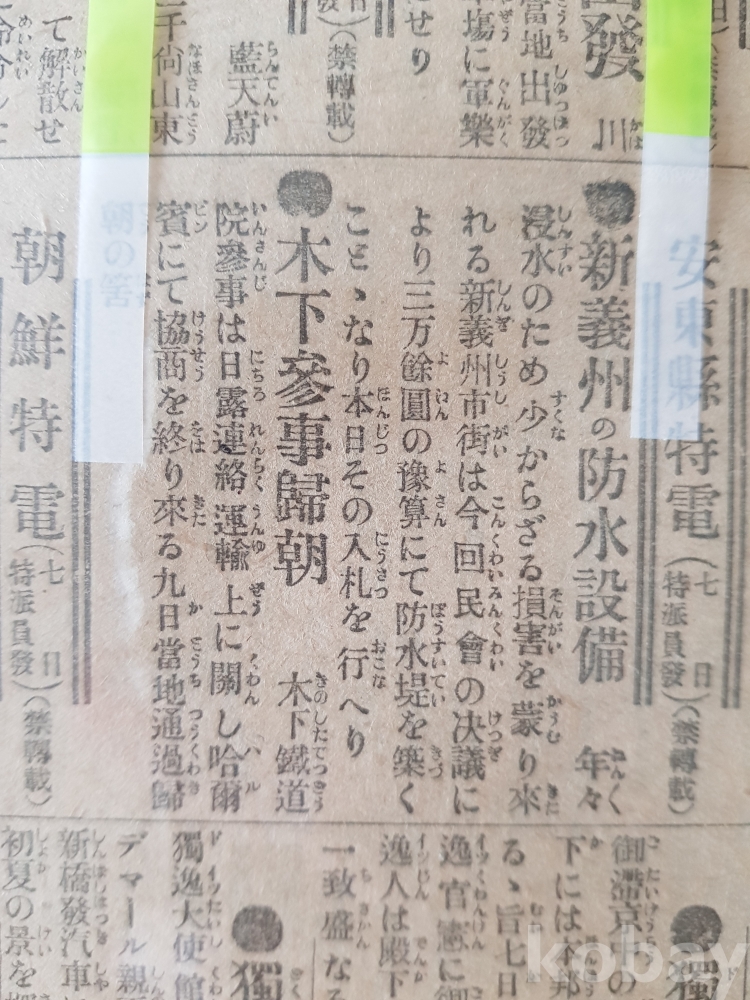 出發 川
當地出發
車場に軍樂
にせり
(禁轉載)
藍天蔚
千尙山東
て解散せ
安東縣特電(七日特派員發)(禁轉載)
●新義州の防水設備 年々
浸水のため少からざる損害を蒙り來
れる新義州市街は今回民會の决議に
より三万餘圓の豫算にて防水堤を築く
ことゝなり本日その入札を行へり
●木下參事歸朝 木下鐵道
院參事は日露連絡運輸上に關し哈爾
賓にて協商を終り來る九日當地通過歸
朝の筈
朝鮮特電(七日特派員發)(禁轉載)
御滯京中の
下には本邦
るゝ旨七日
逸官憲に御
逸人は殿下
一致盛なる
●獨
獨逸大使館
デマール親
新橋發汽車
初夏の景を
kobay